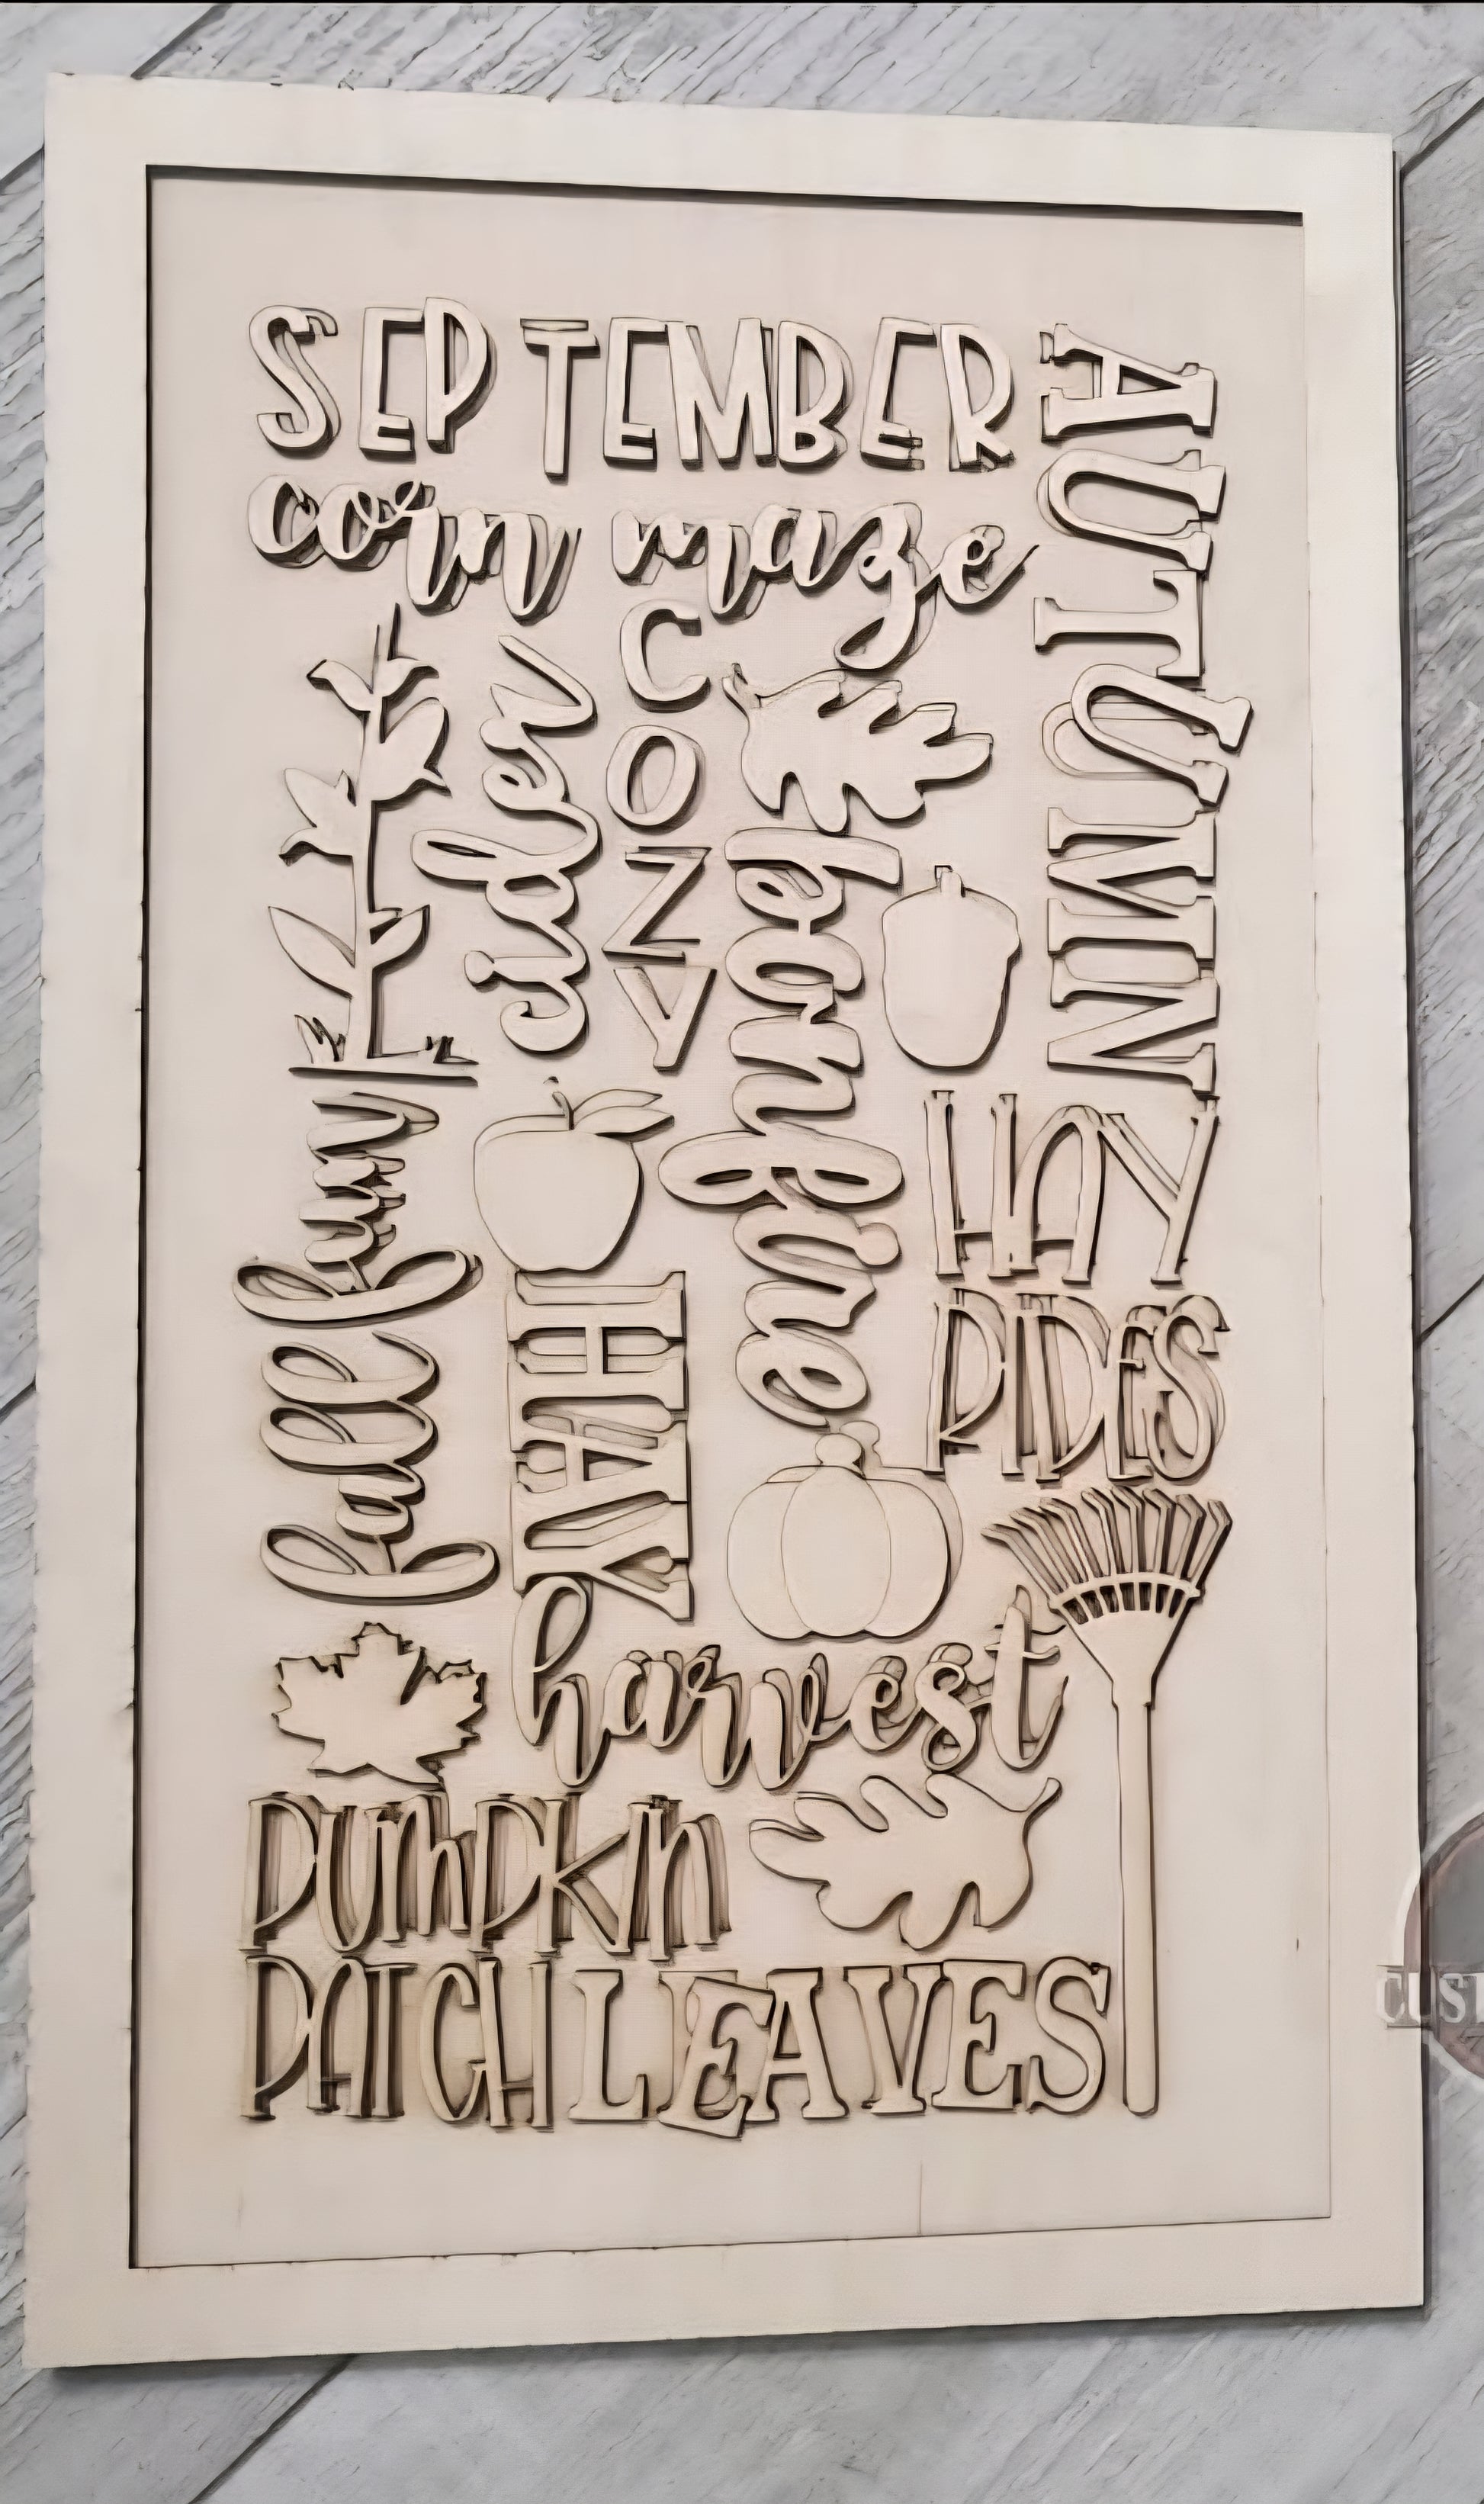 SEPTEMBER
corn maze
AUTUMN
cider
COZY
bonfire
HAY
RIDES
fall fun
HAY
harvest
PUMPKIN
PATCH LEAVES